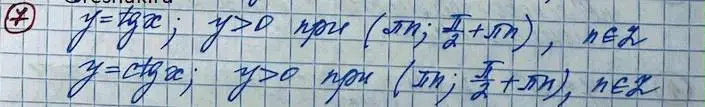 ⑦ y=tgx; y>0 при (πn; π/2+πn), n∈Z
y=ctgx; y>0 при (πn; π/2+πn), n∈Z